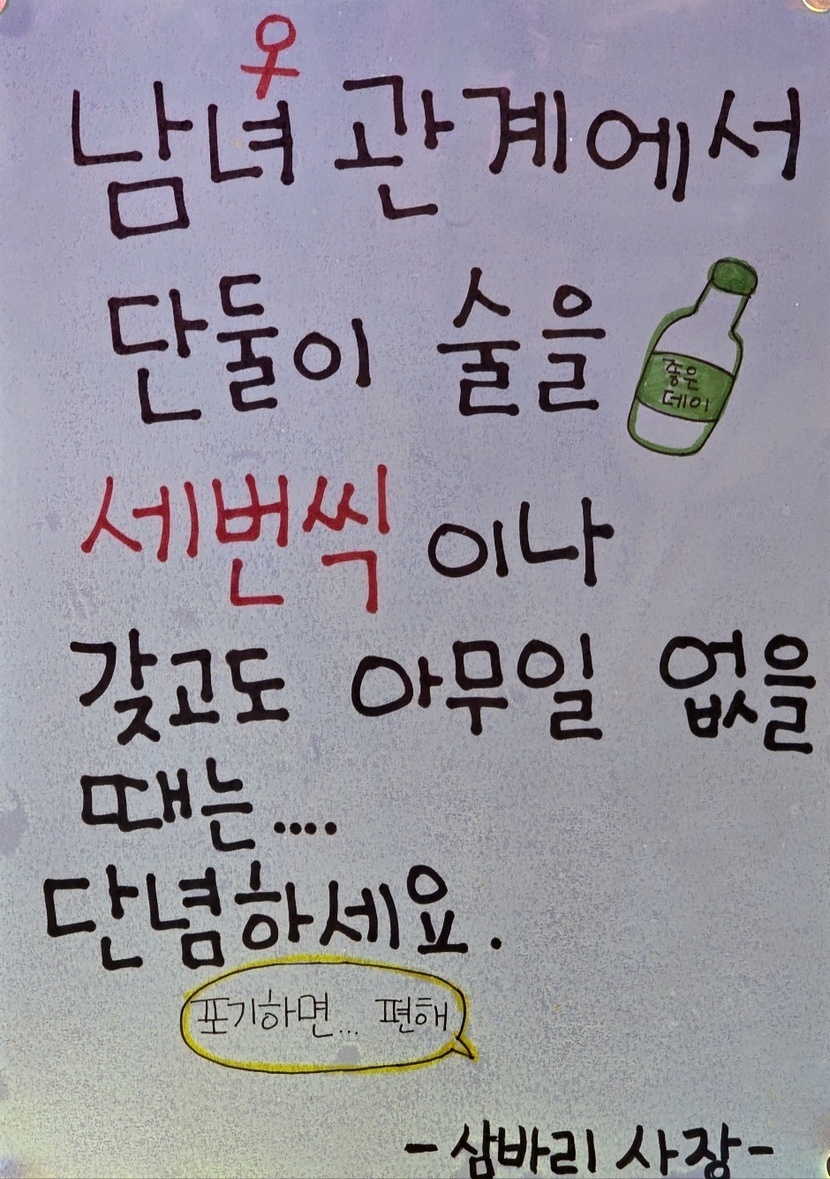 남녀 관계에서
단둘이 술을
좋은
데이
세번씩 이나
갖고도 아무일 없을
때는....
단념하세요.
포기하면... 편해
-삼바리 사장-